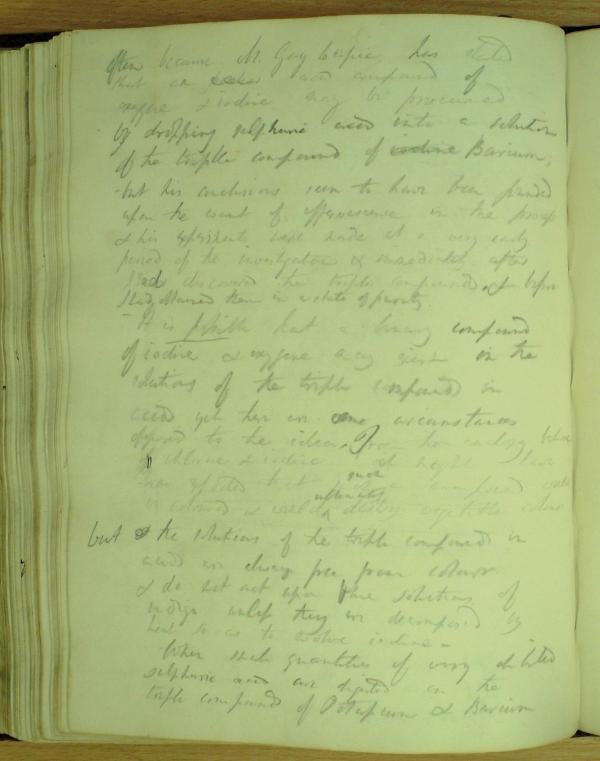 often because M. Gay Lussac has stated
that an acid compound of
oxygene & iodine may be procured
by dropping sulphuric acid into a solution
of the triple compound of iodine Barium;
but his conclusions seem to have been founded
upon the want of effervescence in the process
& his experiments were made at a very early
period of the investigation & immediately after
I had discovered the triple compounds & before
I had obtained them in a state of purity.
It is possible that a binary compound
of iodine & oxygene may exist in the
solutions of the triple compound in
acid yet there are some circumstances
opposed to the idea. From the analogy between
chlorine & iodine it might have
been expected that such compound would
be coloured & would ultimately destroy vegetable colours
but the solutions of the triple compound in
acid are always free from colour
& do not act upon blue solutions of
indigo unless they are decomposed by
heat so as to evolve iodine -
When such quantities of very diluted
sulphuric acid are digested on the
triple compounds of Potassium & Barium